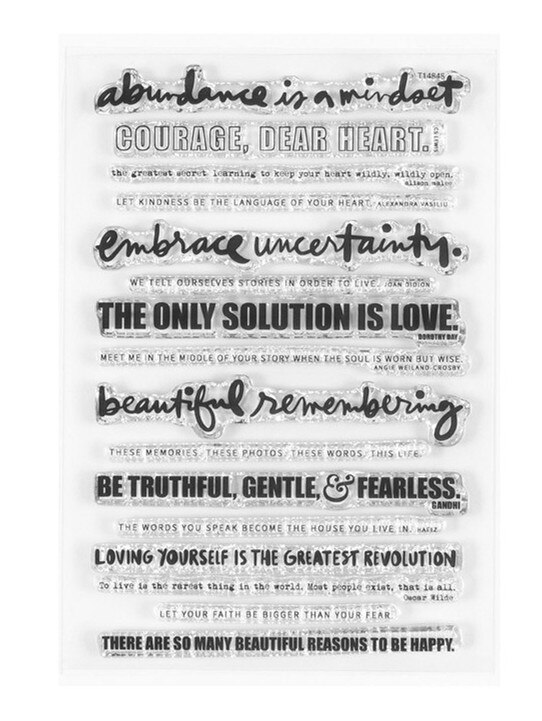 T14848
abundance is a mindset
COURAGE, DEAR HEART. CS LEWIS
the greatest secret learning to keep your heart wildly, wildly open.
alison malee
LET KINDNESS BE THE LANGUAGE OF YOUR HEART. ALEXANDRA VASILIU
embrace uncertainty.
WE TELL OURSELVES STORIES IN ORDER TO LIVE. JOAN DIDION
THE ONLY SOLUTION IS LOVE.
DOROTHY DAY
MEET ME IN THE MIDDLE OF YOUR STORY WHEN THE SOUL IS WORN BUT WISE.
ANGIE WEILAND-CROSBY
beautiful remembering
THESE MEMORIES. THESE PHOTOS. THESE WORDS. THIS LIFE.
BE TRUTHFUL, GENTLE, & FEARLESS.
GANDHI
THE WORDS YOU SPEAK BECOME THE HOUSE YOU LIVE IN. HAFEZ
LOVING YOURSELF IS THE GREATEST REVOLUTION
To live is the rarest thing in the world. Most people exist, that is all.
Oscar Wilde
LET YOUR FAITH BE BIGGER THAN YOUR FEAR
THERE ARE SO MANY BEAUTIFUL REASONS TO BE HAPPY.